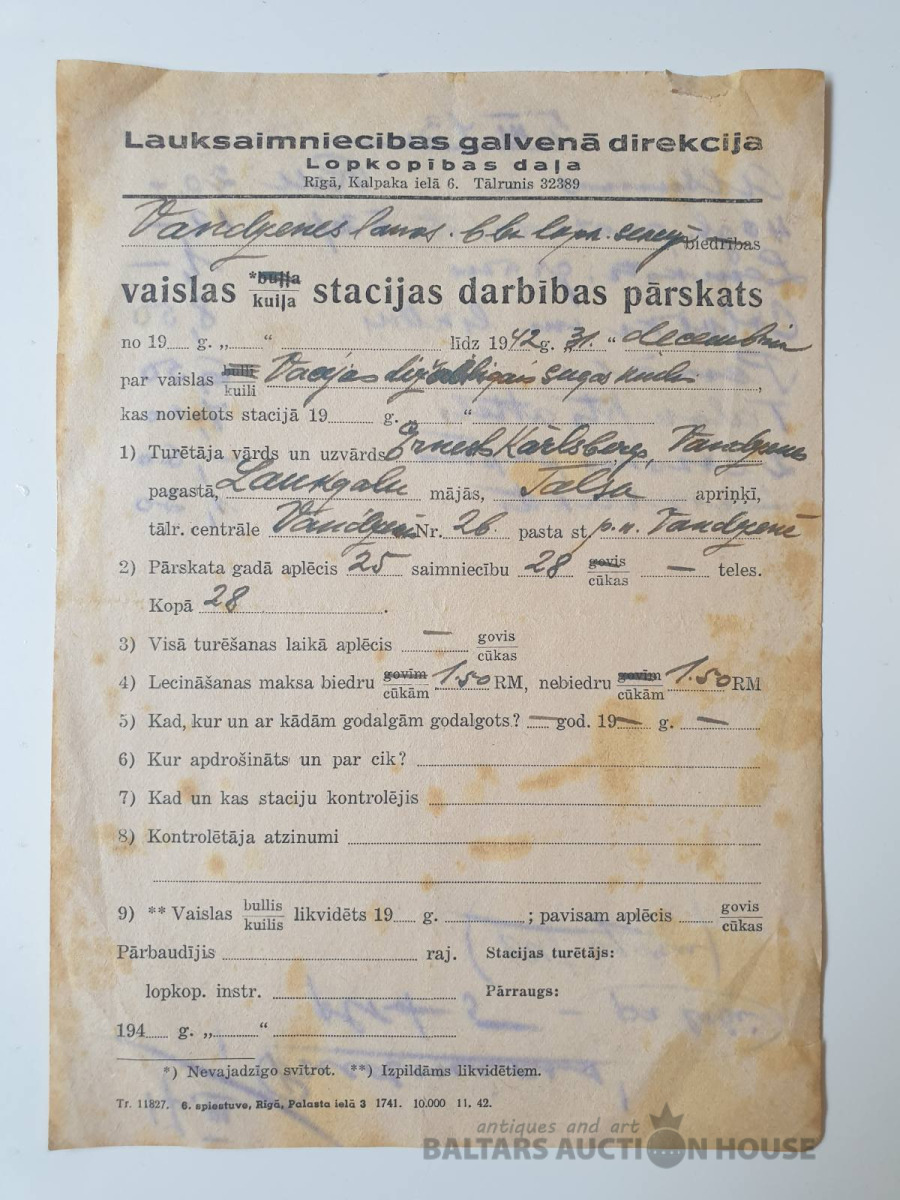 Lauksaimniecības galvenā direkcija
Lopkopības daļa
Rīgā, Kalpaka ielā 6. Tālrunis 32389
Vandzenes biedrības
vaislas *buļļa kuiļa stacijas darbības pārskats
no 19 g. „ “ līdz 1942 g. „31. “ decembrim
par vaislas bulli kuili Vācijas sugas kuili,
kas novietots stacijā 19 g. “
1) Turētāja vārds un uzvārds Ernests Kārlsbergs, Vandzenes
pagastā, Laukgaļu mājās, Talsu apriņķī,
tālr. centrāle Vandzene Nr. 26 pasta st. p.n. Vandzenē
2) Pārskata gadā aplēcis 25 saimniecību 28 govis cūkas — teles.
Kopā 28 .
3) Visā turēšanas laikā aplēcis — govis cūkas
4) Lecināšanas maksa biedru govīm cūkām 1.50 RM, nebiedru govīm cūkām 1.50 RM
5) Kad, kur un ar kādām godalgām godalgots? — god. 19— g. —
6) Kur apdrošināts un par cik?
7) Kad un kas staciju kontrolējis
8) Kontrolētāja atzinumi
9) ** Vaislas bullis kuilis likvidēts 19 g. ; pavisam aplēcis govis cūkas
Pārbaudījis raj. Stacijas turētājs:
lopkop. instr. Pārraugs:
194 g. „ “
*) Nevajadzīgo svītrot. **) Izpildāms likvidētiem.
Tr. 11827. 6. spiestuve, Rīgā, Palasta ielā 3 1741. 10.000 11. 42.
antiques and art
BALTARS AUCTION HOUSE